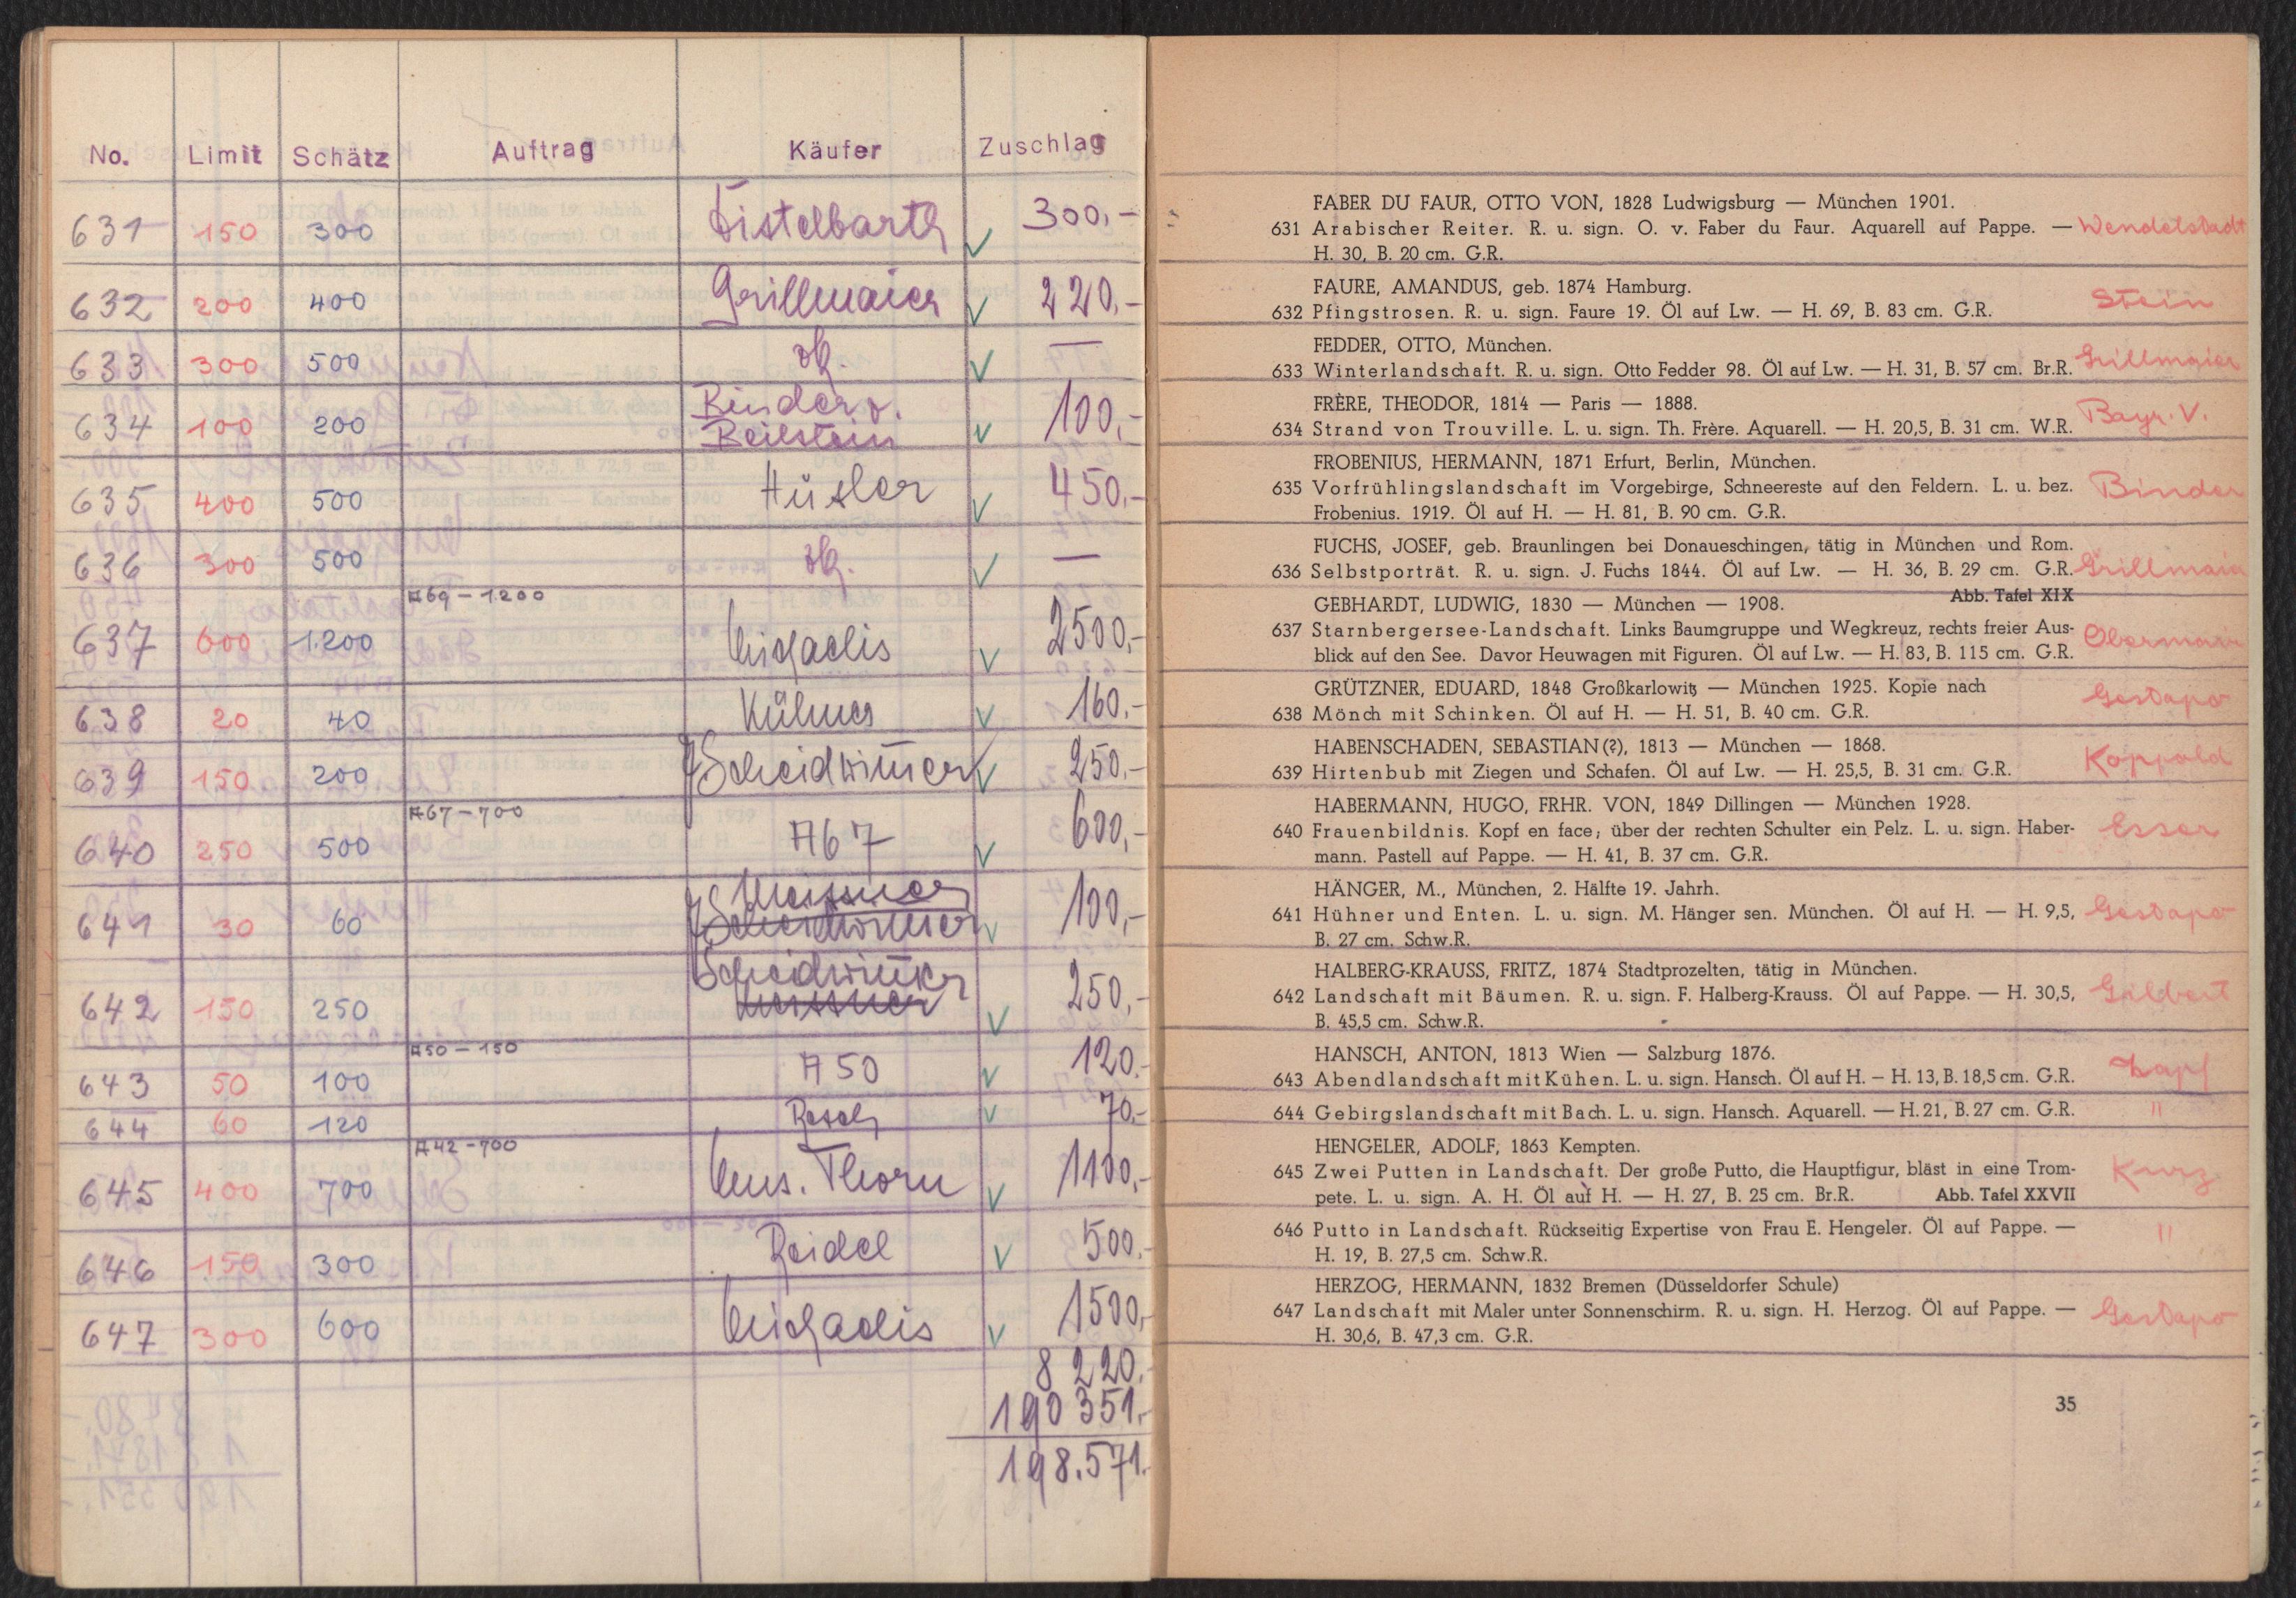 No. Limit Schätz Auftrag Käufer Zuschlag
631 150 300 Fistelbarth √ 300,-
632 200 400 Grillmaier √ 220,-
633 300 500 √ —
634 100 200 Binder v. Beilstein √ 100,-
635 400 500 Hüsler √ 450,-
636 300 500 √ —
A69 – 1200
637 600 1.200 Michaelis √ 2500,-
638 20 40 Kühnes √ 160.-
639 150 200 Scheidwimmer √ 250.-
A67 – 700
640 250 500 A67 √ 600,-
Meissner
641 30 60 Scheidwimmer √ 100,-
Scheidwimmer
642 150 250 Meissner √ 250,-
A50 – 150
643 50 100 A50 √ 120.-
644 60 120 Resch √ 70,-
A42 – 700
645 400 700 Mus. Thorn √ 1100,-
646 150 300 Reidel √ 500.-
647 300 600 Michaelis √ 1500,-
8 220.-
190 351.-
198.571.-
FABER DU FAUR, OTTO VON, 1828 Ludwigsburg — München 1901.
631 Arabischer Reiter. R. u. sign. O. v. Faber du Faur. Aquarell auf Pappe. — Wendelstadt
H. 30, B. 20 cm. G.R.
FAURE, AMANDUS, geb. 1874 Hamburg.
632 Pfingstrosen. R. u. sign. Faure 19. Öl auf Lw. — H. 69, B. 83 cm. G.R. Stein
FEDDER, OTTO, München.
633 Winterlandschaft. R. u. sign. Otto Fedder 98. Öl auf Lw. — H. 31, B. 57 cm. Br.R. Grillmaier
FRÈRE, THEODOR, 1814 — Paris — 1888.
634 Strand von Trouville. L. u. sign. Th. Frère. Aquarell. — H. 20,5, B. 31 cm. W.R. Bayr. V.
FROBENIUS, HERMANN, 1871 Erfurt, Berlin, München.
635 Vorfrühlingslandschaft im Vorgebirge, Schneereste auf den Feldern. L. u. bez. Binder
Frobenius. 1919. Öl auf H. — H. 81, B. 90 cm. G.R.
FUCHS, JOSEF, geb. Braunlingen bei Donaueschingen, tätig in München und Rom.
636 Selbstporträt. R. u. sign. J. Fuchs 1844. Öl auf Lw. — H. 36, B. 29 cm. G.R. Grillmaier
Abb. Tafel XIX
GEBHARDT, LUDWIG, 1830 — München — 1908.
637 Starnbergersee-Landschaft. Links Baumgruppe und Wegkreuz, rechts freier Aus- Obermair
blick auf den See. Davor Heuwagen mit Figuren. Öl auf Lw. — H. 83, B. 115 cm. G.R.
GRÜTZNER, EDUARD, 1848 Großkarlowitz — München 1925. Kopie nach
638 Mönch mit Schinken. Öl auf H. — H. 51, B. 40 cm. G.R. Gestapo
HABENSCHADEN, SEBASTIAN(?), 1813 — München — 1868.
639 Hirtenbub mit Ziegen und Schafen. Öl auf Lw. — H. 25,5, B. 31 cm. G.R. Koppold
HABERMANN, HUGO, FRHR. VON, 1849 Dillingen — München 1928.
640 Frauenbildnis. Kopf en face; über der rechten Schulter ein Pelz. L. u. sign. Haber- Esser
mann. Pastell auf Pappe. — H. 41, B. 37 cm. G.R.
HÄNGER, M., München, 2. Hälfte 19. Jahrh.
641 Hühner und Enten. L. u. sign. M. Hänger sen. München. Öl auf H. — H. 9,5, Gestapo
B. 27 cm. Schw.R.
HALBERG-KRAUSS, FRITZ, 1874 Stadtprozelten, tätig in München.
642 Landschaft mit Bäumen. R. u. sign. F. Halberg-Krauss. Öl auf Pappe. — H. 30,5, Gilbert
B. 45,5 cm. Schw.R.
HANSCH, ANTON, 1813 Wien — Salzburg 1876.
643 Abendlandschaft mit Kühen. L. u. sign. Hansch. Öl auf H. – H. 13, B. 18,5 cm. G.R. Zapf
644 Gebirgslandschaft mit Bach. L. u. sign. Hansch. Aquarell. — H. 21, B. 27 cm. G.R. "
HENGELER, ADOLF, 1863 Kempten.
645 Zwei Putten in Landschaft. Der große Putto, die Hauptfigur, bläst in eine Trom- Kurz
pete. L. u. sign. A. H. Öl auf H. — H. 27, B. 25 cm. Br.R. Abb. Tafel XXVII
646 Putto in Landschaft. Rückseitig Expertise von Frau E. Hengeler. Öl auf Pappe. — "
H. 19, B. 27,5 cm. Schw.R.
HERZOG, HERMANN, 1832 Bremen (Düsseldorfer Schule)
647 Landschaft mit Maler unter Sonnenschirm. R. u. sign. H. Herzog. Öl auf Pappe. — Gestapo
H. 30,6, B. 47,3 cm. G.R.
35